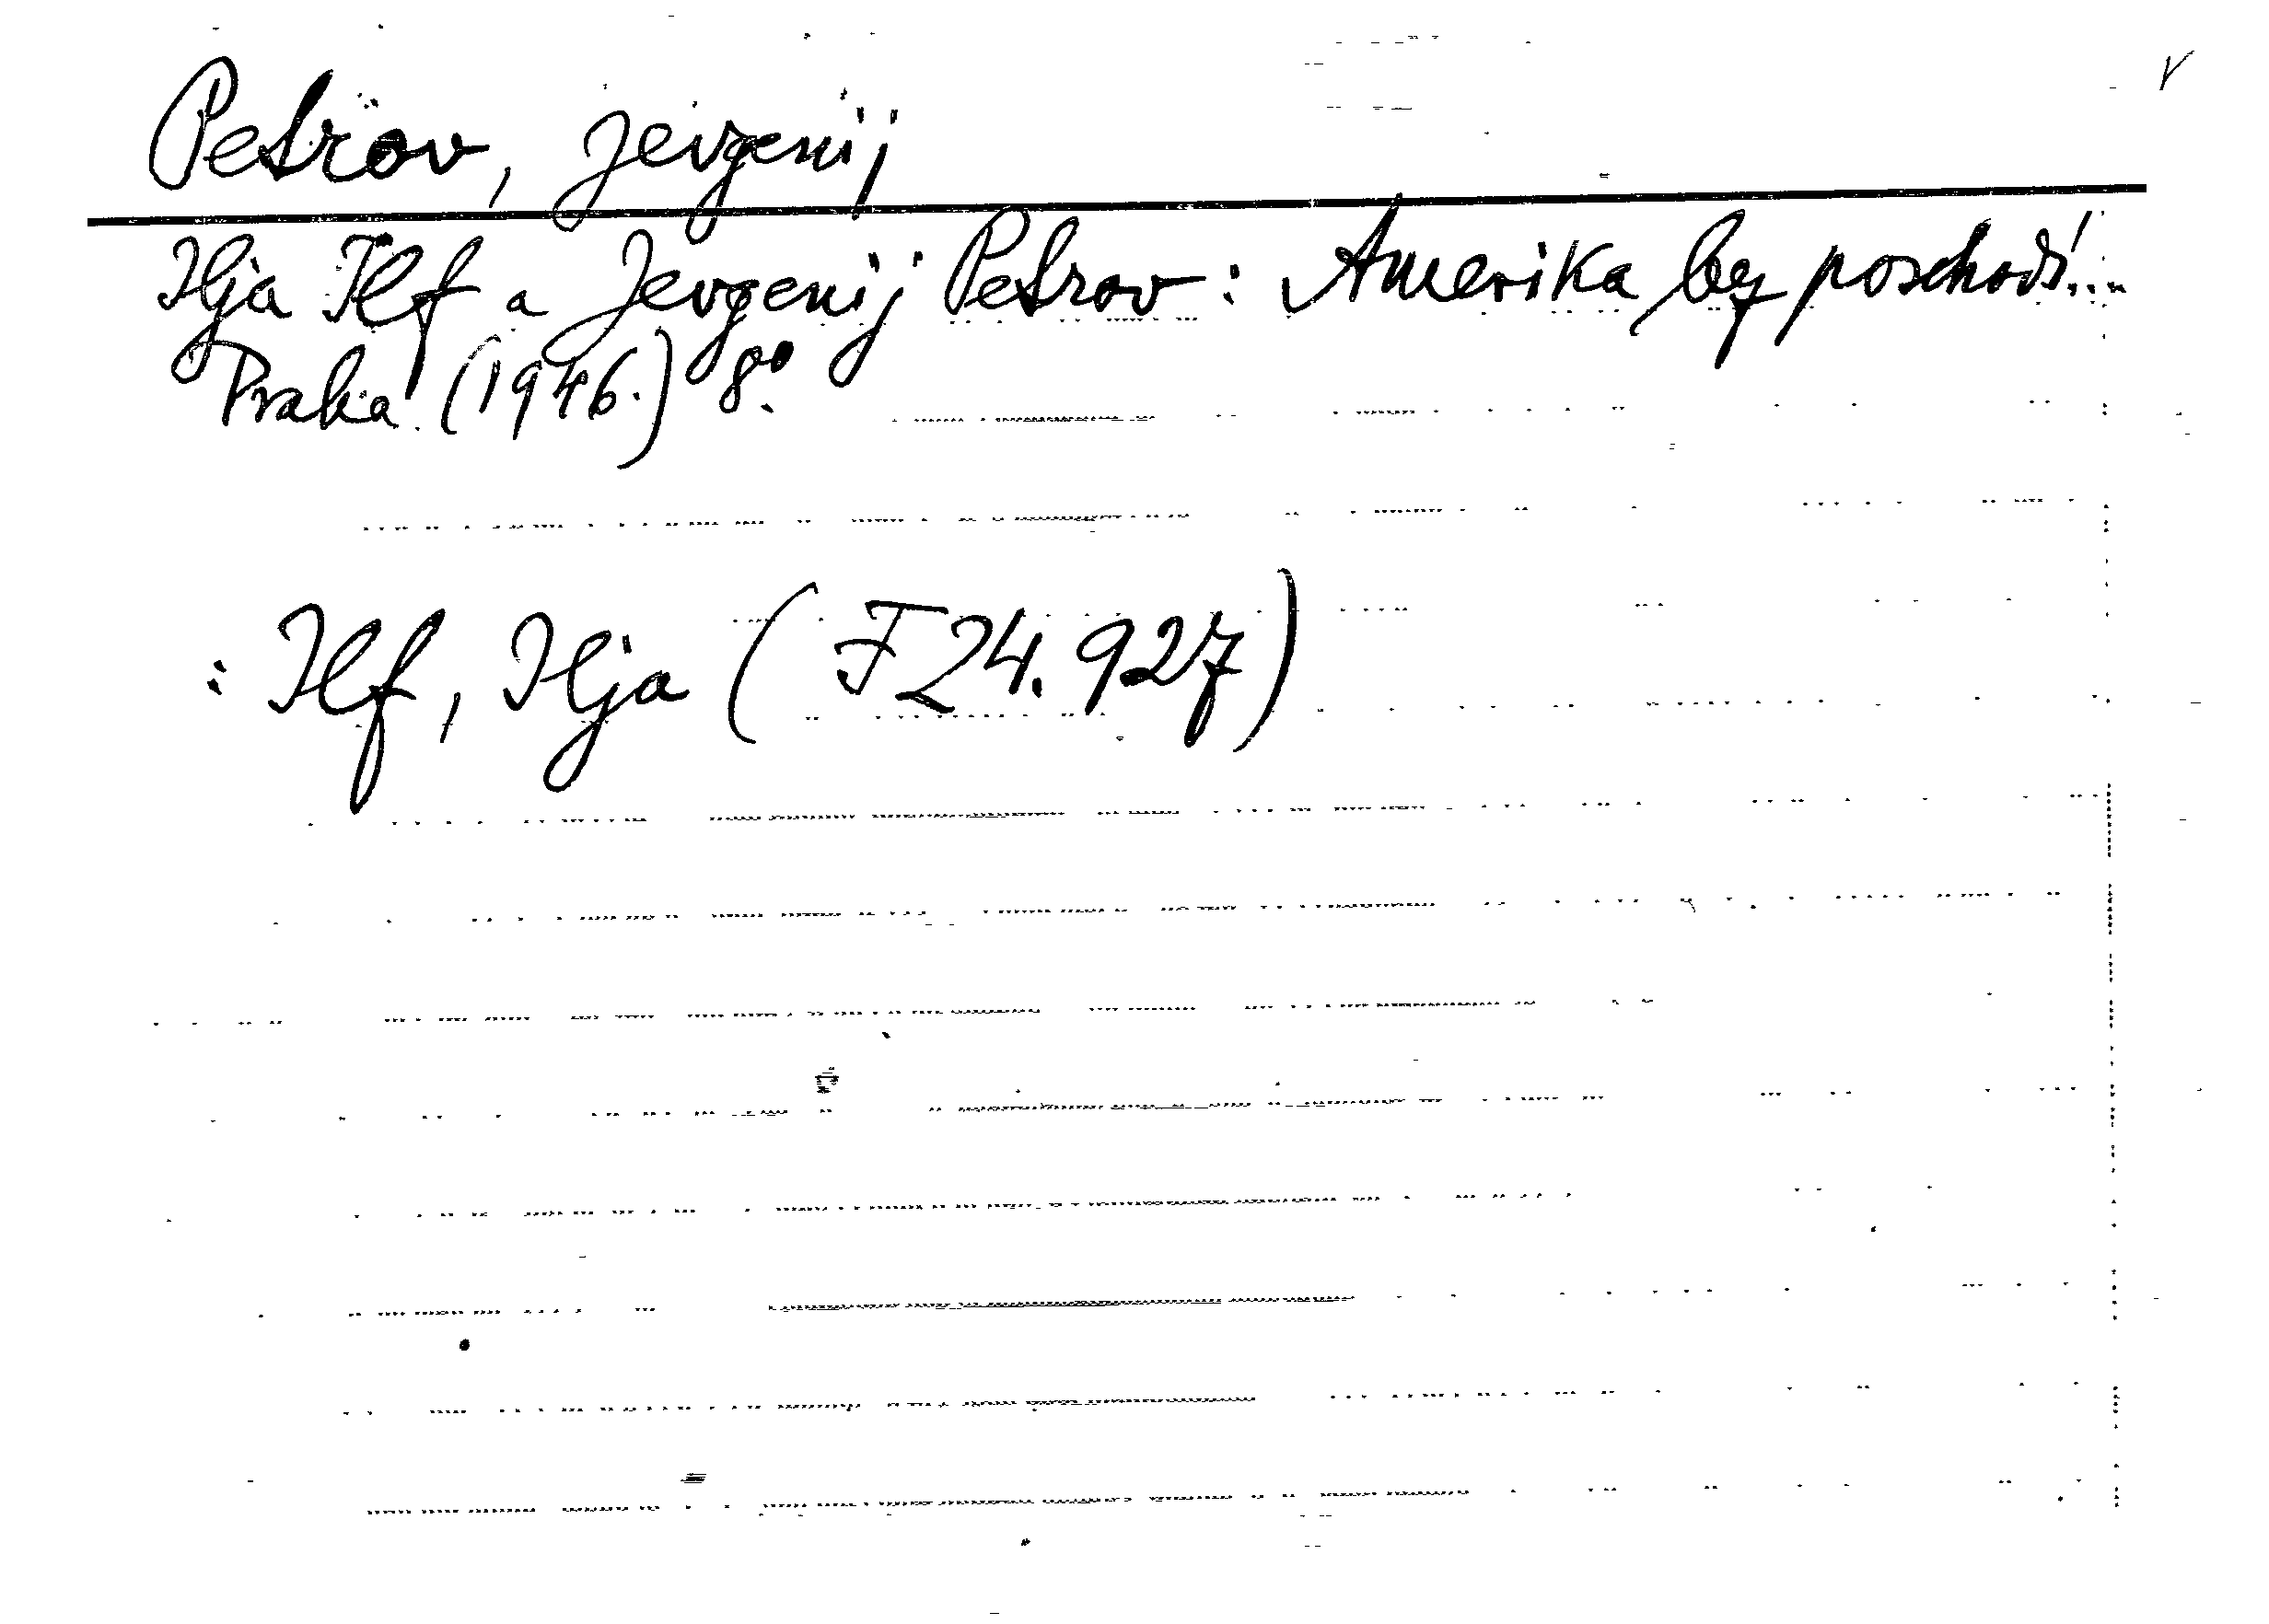 Petrov, Jevgenij
Ilja Ilf a Jevgenij Petrov: Amerika bez poschodí...
Praha (1946.) 8°.
: Ilf, Ilja (F 24.927)